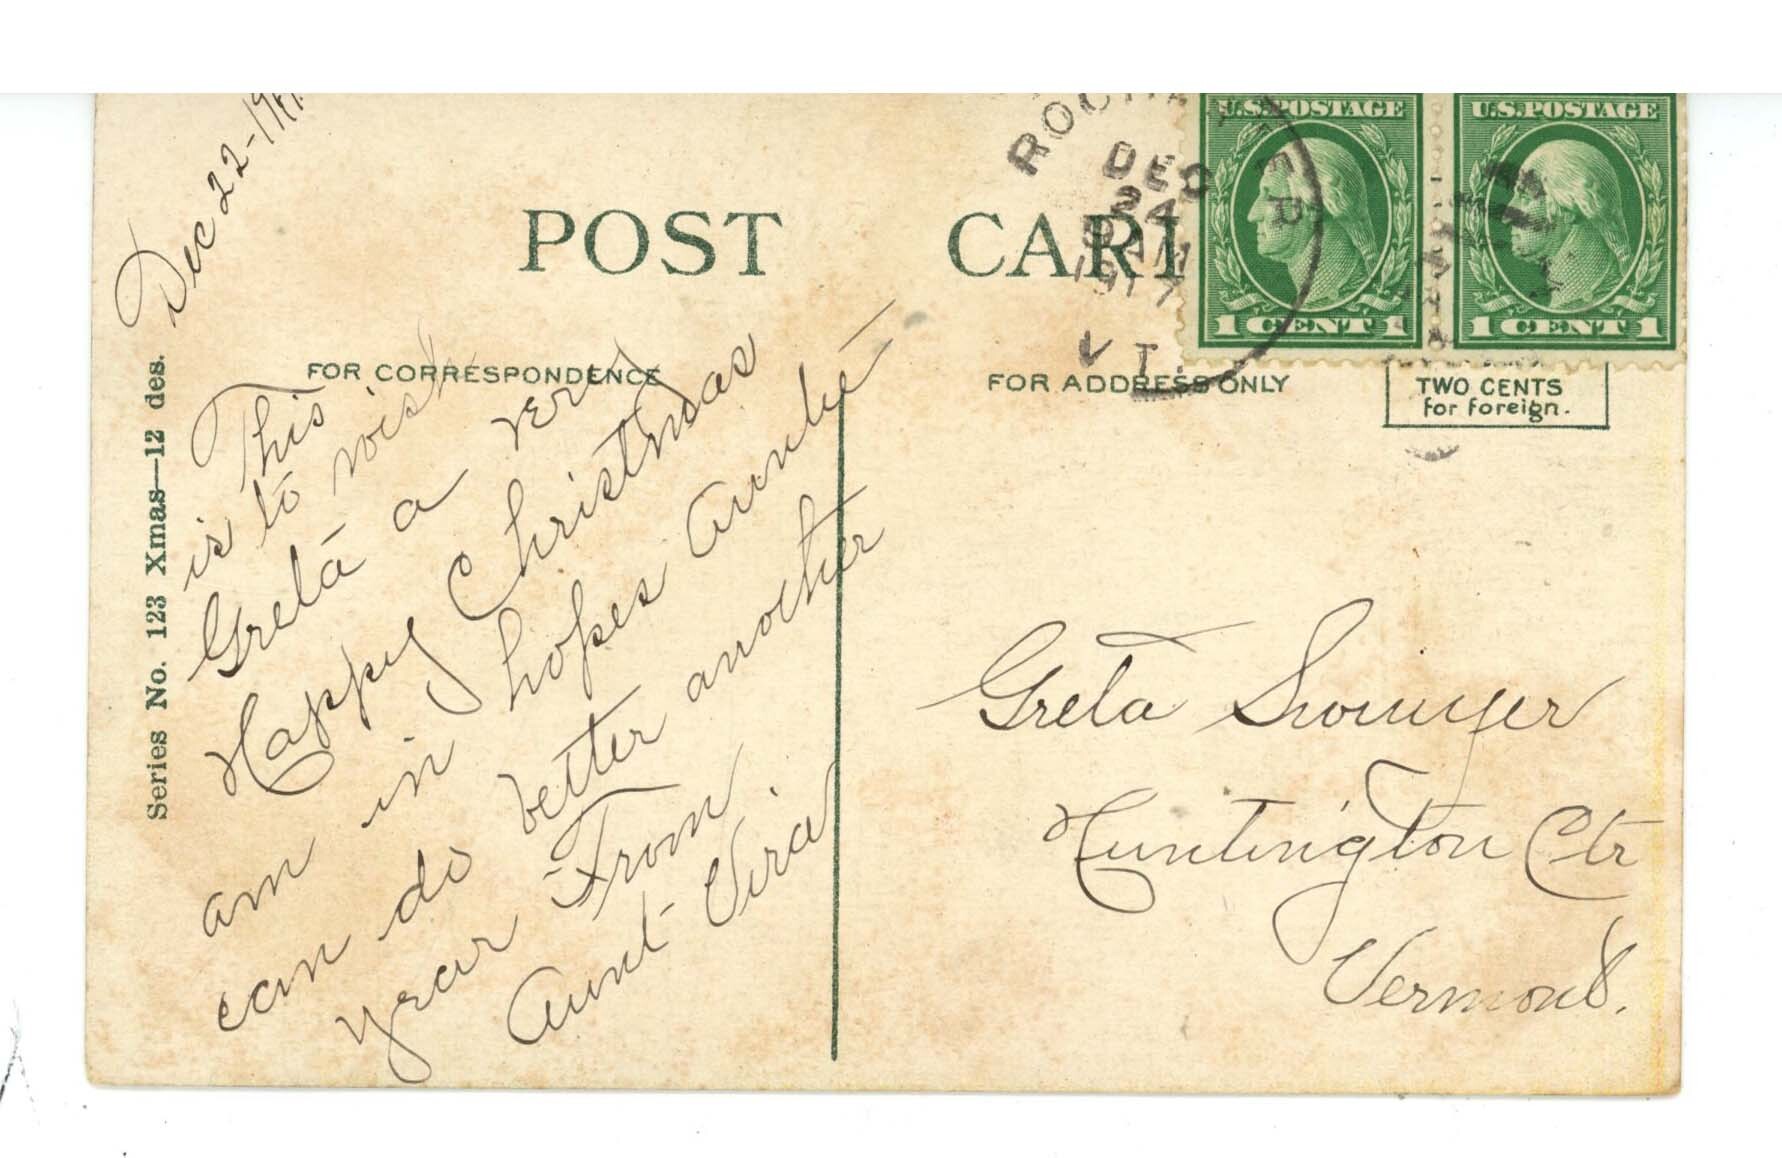 Dec 22-1917
POST CARD
ROCHESTER
DEC
24
9 AM
1917
VT.
U.S. POSTAGE
1 CENT 1
U.S. POSTAGE
1 CENT 1
FOR CORRESPONDENCE
FOR ADDRESS ONLY
TWO CENTS
for foreign.
Series No. 123 Xmas—12 des.
This
is to wish
Greta a very
Happy Christmas
am in hopes Auntie
can do better another
year From
Aunt Vira
Greta
Huntington Ctr
Vermont.